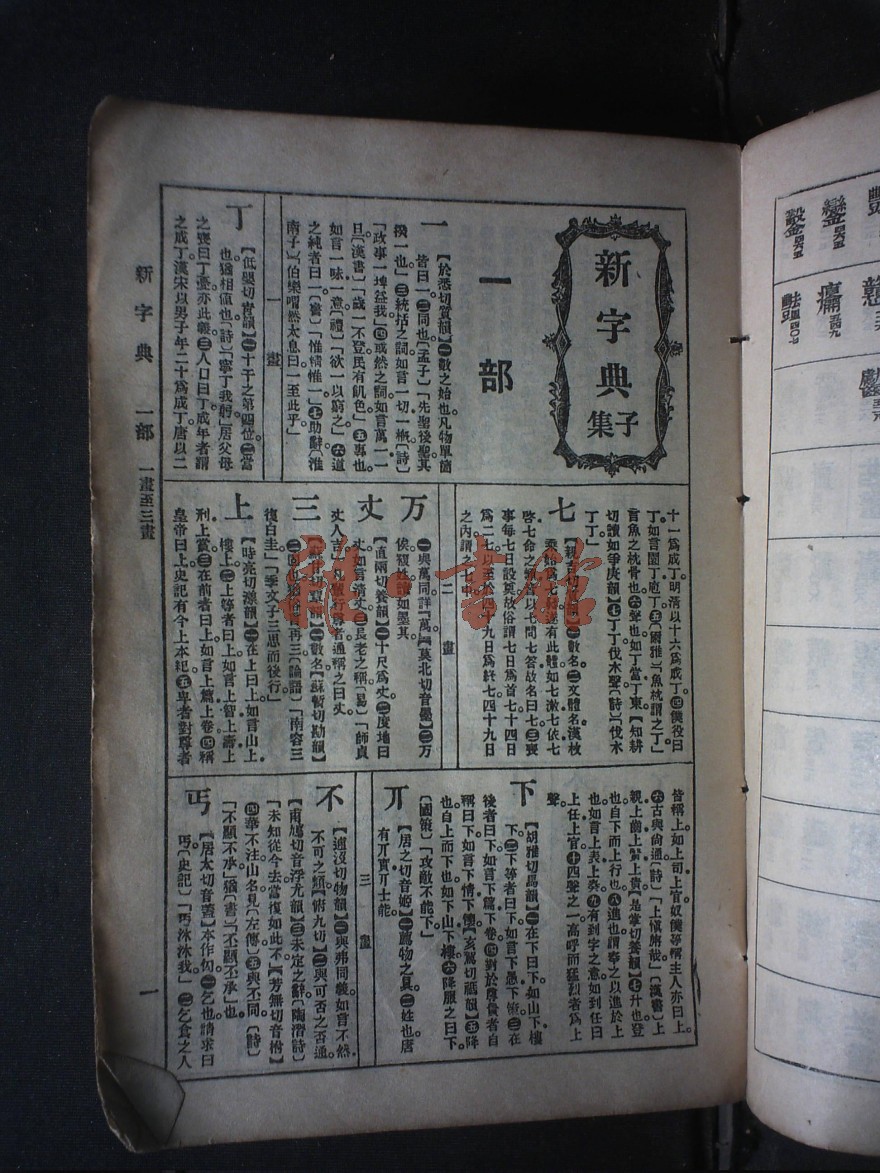 新字典
子集
一部
一
【於悉切質韻】㊀數之始也。凡物單箇
皆曰一。㊁同也。〔孟子〕「先聖後聖其
揆一也」㊂統括之詞如言一切一槪〔詩〕
「政事一埤益我」㊃或然之詞如言萬一一
旦〔漢書〕「歲一不登民有飢色」㊄專也
如言一味一意〔禮〕「欲一以窮之」㊅道
之純者曰一〔書〕「惟精惟一」㊆助辭〔淮
南子〕「伯樂喟然太息曰一至此乎」
一畫
丁
【低嬰切靑韻】㊀十干之第四位㊁當
也猶相値也〔詩〕「寧丁我躬」居父母
之喪曰丁憂亦此義㊂人口曰丁成年者謂
之成丁漢宋以男子年二十爲成丁唐以二
十一爲成丁明淸以十六爲成丁㊃僕役曰
丁如言園丁庖丁㊄〔爾雅〕「魚枕謂之丁」
言魚之枕骨也㊅聲也如丁當丁東【知耕
切讀如爭庚韻】㊆丁丁伐木聲〔詩〕「伐木
丁丁」
七
㊀數名㊁文體名漢枚
乘始爲七發遂有此體如七激七依七
啓七命之類皆以七問七答故名曰七㊂喪
事每七日設奠故俗謂七日爲首七十四日
爲二七以至於四十九日爲終七四十九日
之內謂之七中
二畫
万
㊀與萬同詳「萬」【莫北切音墨】㊁万
俟複姓讀如墨其
丈
【直兩切養韻】㊀十尺爲丈㊁度地曰
丈如言淸丈㊂長老之稱〔易〕「師貞
丈人吉」凡敵行尊者通稱之曰丈
三
㊀數名【蘇暫切勘韻】
再三〔論語〕「南容三
復白圭」「季文子三思而後行」
上
【時亮切漾韻】㊀在上曰上如言山上
樓上㊁上等者曰上如言上智上壽上
刑上賞㊂在前者曰上如言上篇上卷㊃稱
皇帝曰上史記有今上本紀㊄卑者對尊者
皆稱上如上司上官奴僕等稱主人亦曰上
㊅古與尙通〔詩〕「上愼旃哉」〔漢書〕「上
親上前上賢上貴」【是掌切養韻】㊆升也登
也自下而上行也㊇進也謂奉之以進於上
也如言上表上奏㊈有到字之意如到任曰
上任上官㊉四聲之一高呼而猛烈者爲上
聲
下
【胡雅切馬韻】㊀在下曰下如山下樓
下㊁下等者曰下如言下愚下術㊂在
後者曰下如言下篇下卷㊃對於尊貴者自
稱曰下如言下情下懷【亥駕切禡韻】㊄降
也自上而下也如下山下樓㊅降服之曰下
〔國策〕「攻敵不能下」
丌
【居之切音姬】㊀薦物之具㊁姓也唐
有丌實丌士能
三畫
不
【逋沒切物韻】㊀與弗同義如言不然
不可之類【俯九切】㊁與可否之否通
【甫鳩切音浮尤韻】㊂未定之辭〔陶潛詩〕
「未知從今去當復如此不」【芳無切音柎】
㊃華不注山名見〔左傳〕㊄與丕同〔詩〕
「不顯不承」猶〔書〕「丕顯丕承」也
丐
【居太切音蓋】本作匃㊀乞也請求曰
丐〔史記〕「丐沐沐我」㊁乞食之人
新字典 一部 一畫至三畫
一